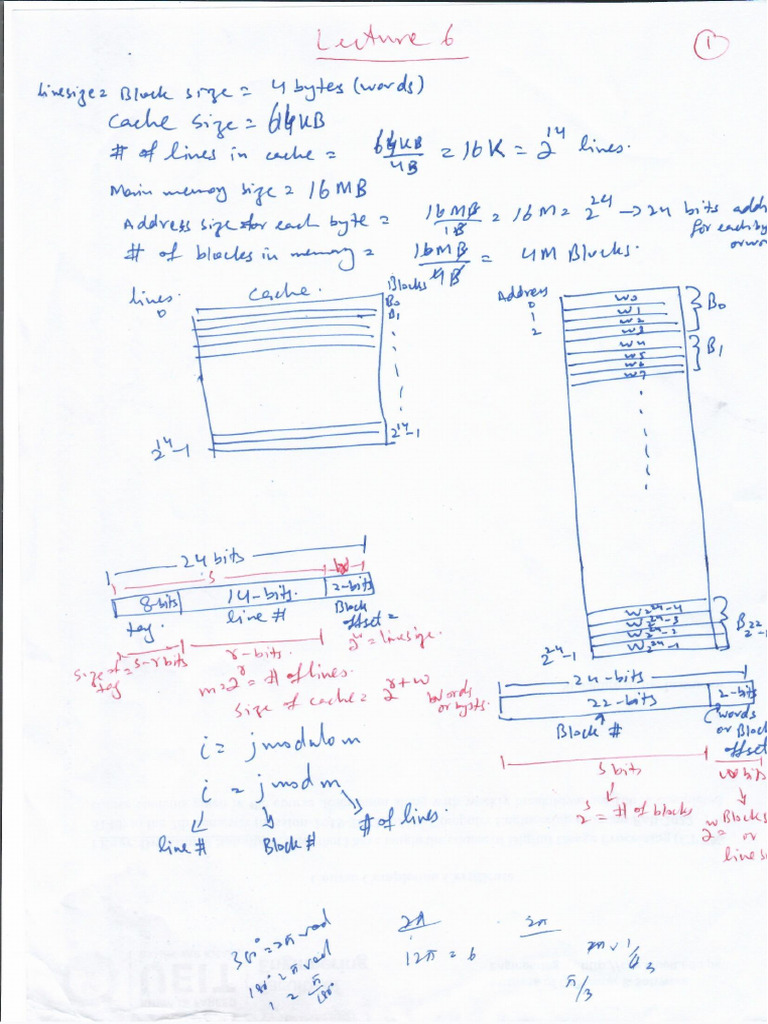 Lecture 6
1
Linesize = Block size = 4 bytes (words)
Cache Size = 64KB
# of lines in cache = 64KB/4B = 16K = 2^14 lines.
Main memory size = 16MB
Address size for each byte = 16MB/1B = 16M = 2^24 → 24 bits addr
for each by
or wor
# of blocks in memory = 16MB/4B = 4M Blocks.
lines. Cache. Blocks
0 B0
B1
2^14-1 2^14-1
Address
0 W0
1 W1 B0
2 W2
W3
W4 B1
W5
W6
W7
W2^24-4
W2^24-3 B2^22-1
W2^24-2
2^24-1 W2^24-1
24 bits
s
8-bits 14-bits. 2-bits
tag. line # Block
offset =
2^w = linesize.
Size of tag = s-r bits r-bits.
m = 2^r = # of lines.
Size of cache = 2^(r+w) words
or bytes.
24-bits
22-bits 2-bits
Block # (words
or Block
offset
s bits w bits
2^s = # of blocks 2^w = Blocks
or
line s
i = j modulo m
i = j mod m
line # Block # # of lines.
360° = 2π rad
180° = π rad
1 = π/180°
2π
12π = 6
2π
2π × 1/6 3
π/3
UEIT